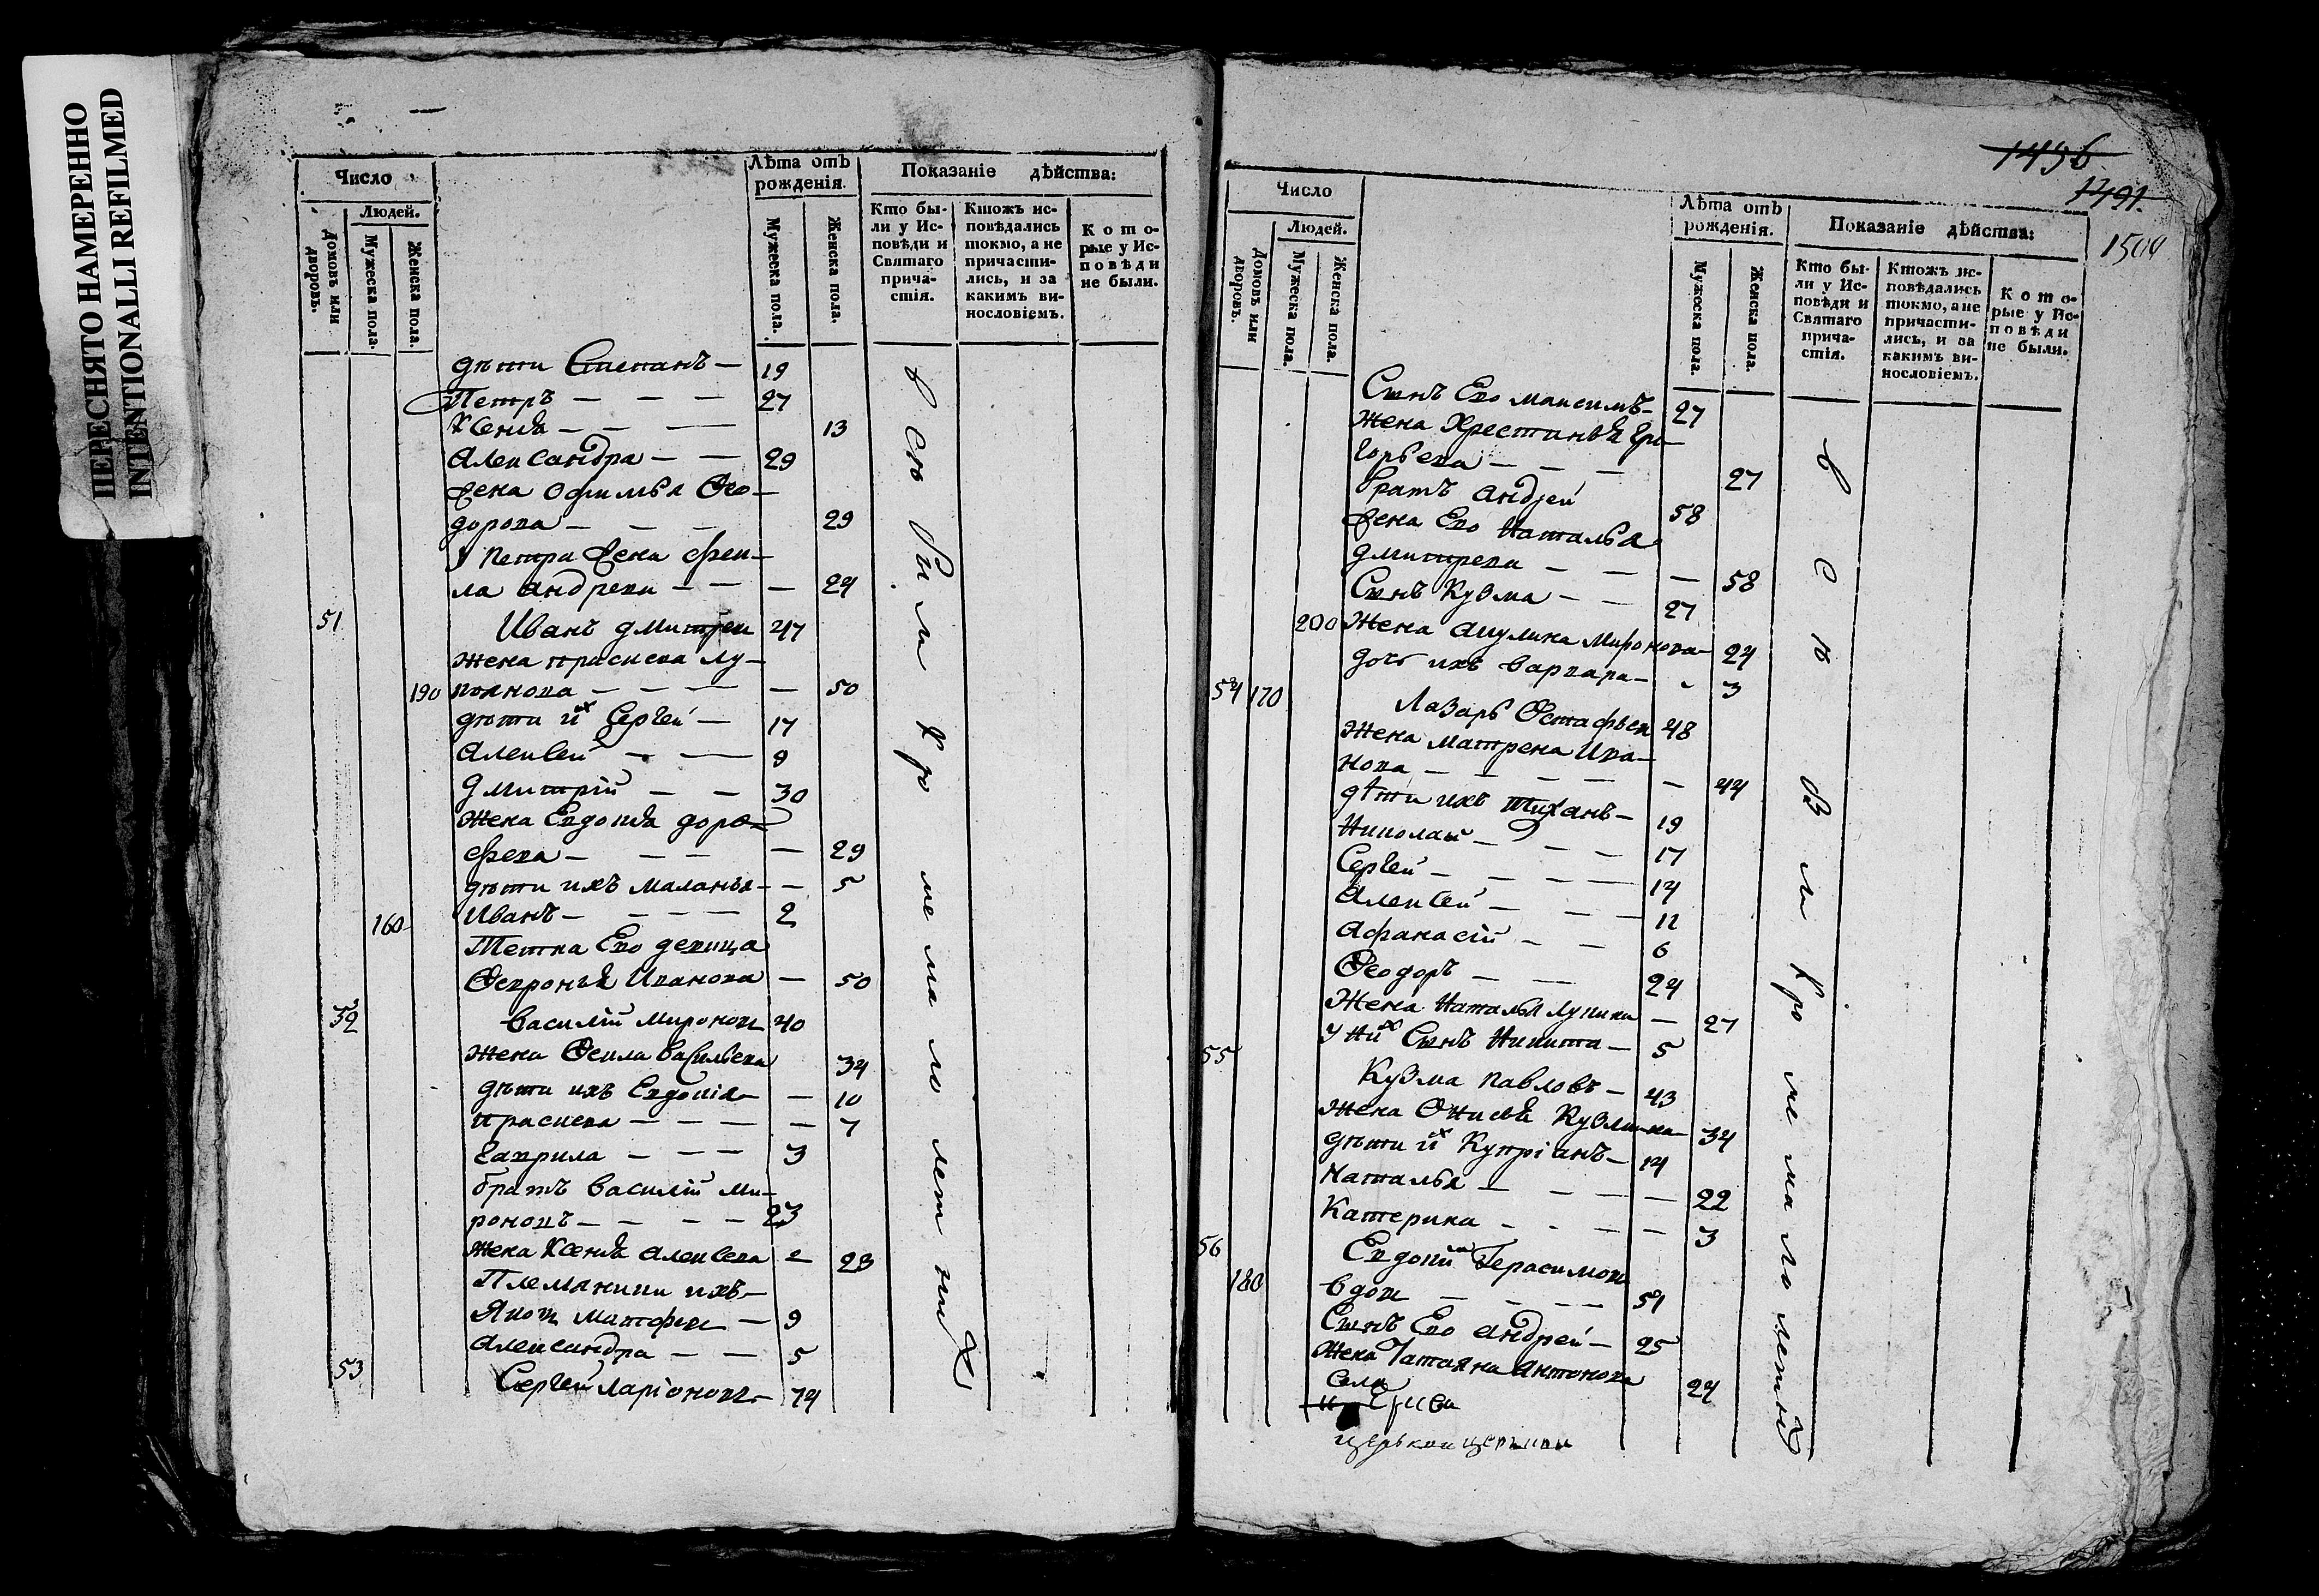 ПЕРЕСНЯТО НАМЕРЕННО
INTENTIONALLI REFILMED
Число
Людей.
Домовъ или дворовъ.
Мужеска пола.
Женска пола.
Лѣта отъ рожденія.
Мужеска пола.
Женска пола.
Показаніе дѣйства:
Кто бы-
ли у Ис-
повѣди и
Святаго
прича-
стія.
Ктожъ ис-
повѣдались
токмо, а не
причасти-
лись, и за
какимъ ви-
нословіемъ.
Кото-
рые у Ис-
повѣди
не были.
дѣти Степанъ — 19
Петръ — — — 27
Ксенія — — — 13
Александра — — 29
Жена Офимья Ѳео-
дорова — — — 29
У Петра Жена Фек-
ла Андреева — — — 24
51 Иванъ Дмитреев 47
Жена Прасиева Лу-
190 кианова — — — — 50
дѣти их Сергей — 17
Алексей — — 9
Дмитрій — — 30
Жена Евдокія Доро-
феева — — — — 29
дѣти ихъ Маланья — — 5
160 Иванъ — — — — 2
Тетка Его девица
Февронья Иванова — 50
52 Василій Миронов 40
Жена Фекла Васильева 34
дѣти ихъ Евдокія — — 10
Прасиева — — — — 7
Гаврила — — — 3
братъ Василій Ми-
роновъ — — — — 23
Жена Ксенія Алексеева — 23
Племяники ихъ —
Яков Матфеев — 9
Александра — — 5
53 Сергей Ларіонов — 74
Всю были кроме малолетних
1496
1491.
1500
Число
Людей.
Домовъ или дворовъ.
Мужеска пола.
Женска пола.
Лѣта отъ рожденія.
Мужеска пола.
Женска пола.
Показаніе дѣйства:
Кто бы-
ли у Ис-
повѣди и
Святаго
прича-
стія.
Ктожъ ис-
повѣдались
токмо, а не
причасти-
лись, и за
какимъ ви-
нословіемъ.
Кото-
рые у Ис-
повѣди
не были.
Сынъ Его Максимъ — 27
Жена Хрестинья Гри-
горьева — — — 27
братъ Андрей 58
Жена Его Наталья
Дмитрева — — — 58
Сынъ Кузма — — 27
200 Жена Акулина Миронова — 24
дочь ихъ Варвара — 3
54 170 Лазарь Остафьев 48
Жена Матрена Ива-
нова — — — — — 44
дѣти ихъ Тиханъ — 19
Николай — — — 17
Сергей — — — — 14
Алексей — — — 12
Афанасій — — 6
Ѳеодоръ — — 24
Жена Наталья Лукина — 27
У них Сынъ Никита — 5
55 Кузма Павловъ — 43
Жена Онисья Кузмина — 34
дѣти их Купріанъ — 14
Наталья — — — — 22
Катерина — — — — 3
56 Евдоким Герасимов
180 вдов — — — — 59
Сынъ Его Андрей — 25
Жена Татаяна Антонова 24
Села
церькви